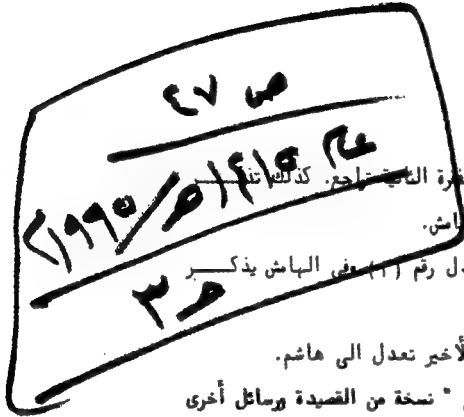 ص ٤٧
عام ١٤١٥هـ/١٩٩٥م
هـ ٣
فقرة الثانية تراجع. كذلك تذكر
هامش.
رقم (١) وفي الهامش يذكر
الأخير تعدل الى هاشم.
" نسخة من القصيدة ورسائل أخرى